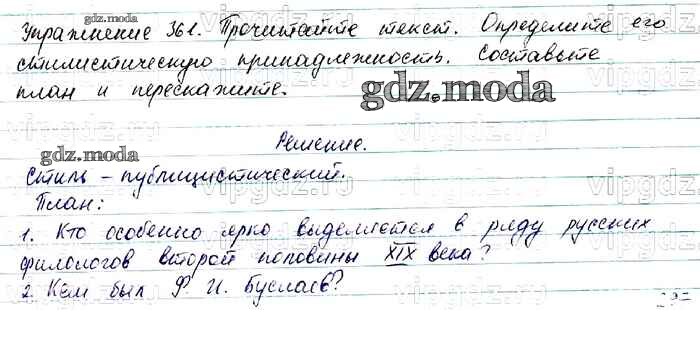 Упражнение 361. Прочитайте текст. Определите его
стилистическую принадлежность. Составьте
план и перескажите.
gdz.moda
Решение.
Стиль - публицистический.
План:
1. Кто особенно ярко выделяется в ряду русских
филологов второй половины XIX века?
2. Кем был Ф. И. Буслаев?